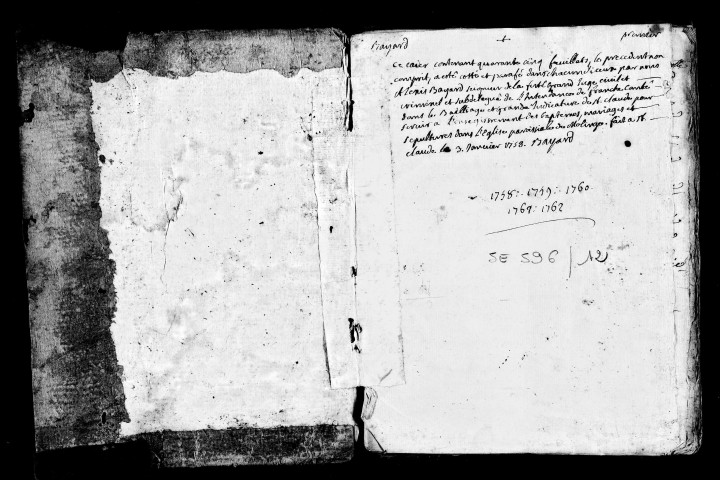 Bayard + premier
Ce caier contenant quarante cinq feuillets, le precedent non
comprit, a eté cotté et parafé dans chacun d'iceux par nous
Alexis Bayard seigneur de la ferté grand juge, civil et
criminel et subdelegué de l'Intendance de franche Comté
dans le Bailliage et grande Judicature de St. claude pour
servir a l'enregistrement des baptemes, mariages et
sepultures dans l'Eglise paroissiale du Molinge. fait a St.
claude le 3. Janvier 1758. Bayard
1758:-1759:-1760
1761:-1762
5E 596 / 12